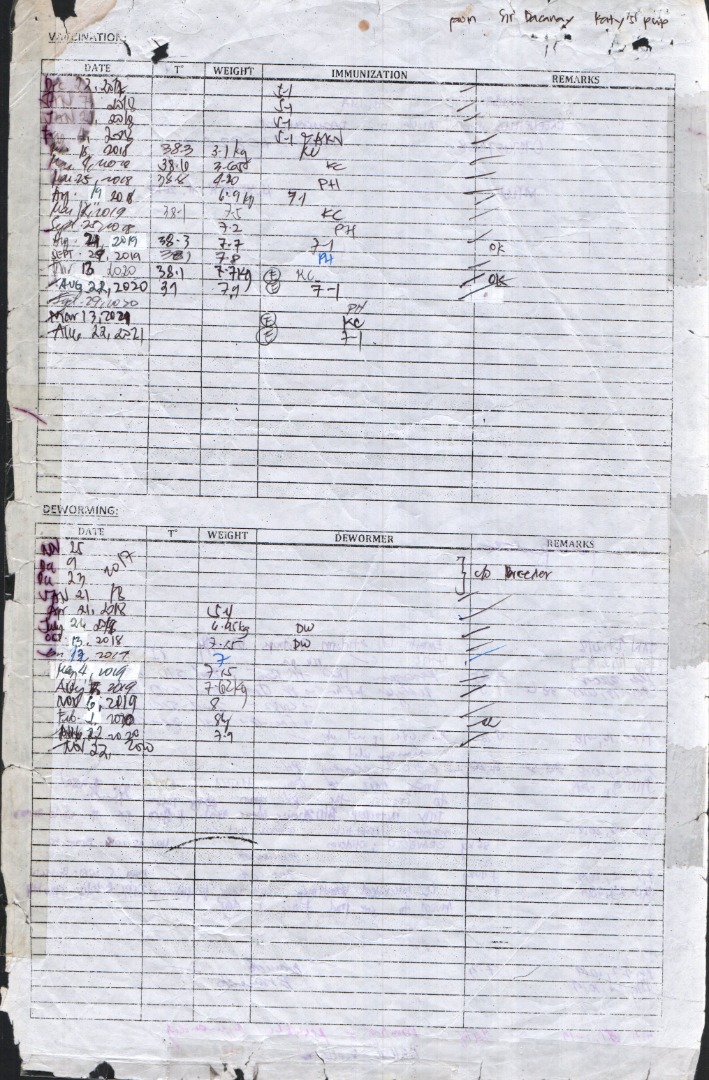 from Sir Dacanay Katy's pup
VACCINATION:
DATE T° WEIGHT IMMUNIZATION REMARKS
2017 5-1
JAN 7, 2018 5-1
JAN 21, 2018 5-1
2018 5-1
2018 38.3 3.1 kg
38.10 KC
Mar 25, 2018 38.6 4.20 PH
Aug 19 2018 6.9 kg 7-1
Mar 12, 2019 38.1 7.5 KC
Sept. 25, 7.2 PH
Aug 24, 2019 38.3 7.7 7-1 OK
SEPT. 29, 2019 7.8 PH
Mar 13 2020 38.1 7.7kg E KC OK
AUG 22, 2020 37 7.9 E 7-1
Sept. 29, 2020 PH
Mar 13, 2021 E KC
Aug 22, 2021 E 7-1
DEWORMING:
DATE T° WEIGHT DEWORMER REMARKS
NOV 25
Dec 9 2017
Dec 23 c/o Breeder
JAN 21, 18
Apr 21, 2018 5.4
July 24 2018 6.95kg DW
OCT 13, 2018 7.15 DW
Jan 7
May 4, 2019 7.15
Aug 2019 7.62kg
NOV 6, 2019 8
Feb. 1, 2020
AUG 22 2020 7.9
NOV 22, 2020